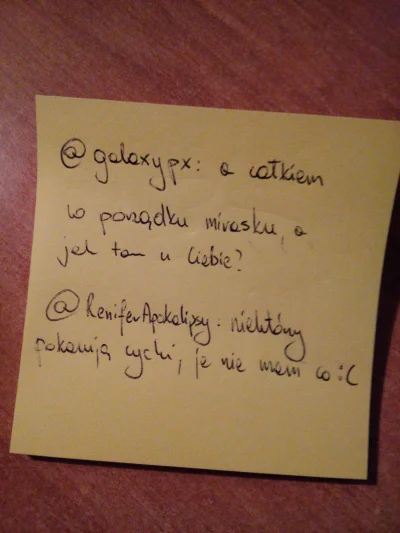 @galaxypx: a całkiem
w porządku mirasku, a
jak tam u Ciebie?
@ReniferApokalipsy: niektórzy
pokazują cycki, ja nie mam co :C